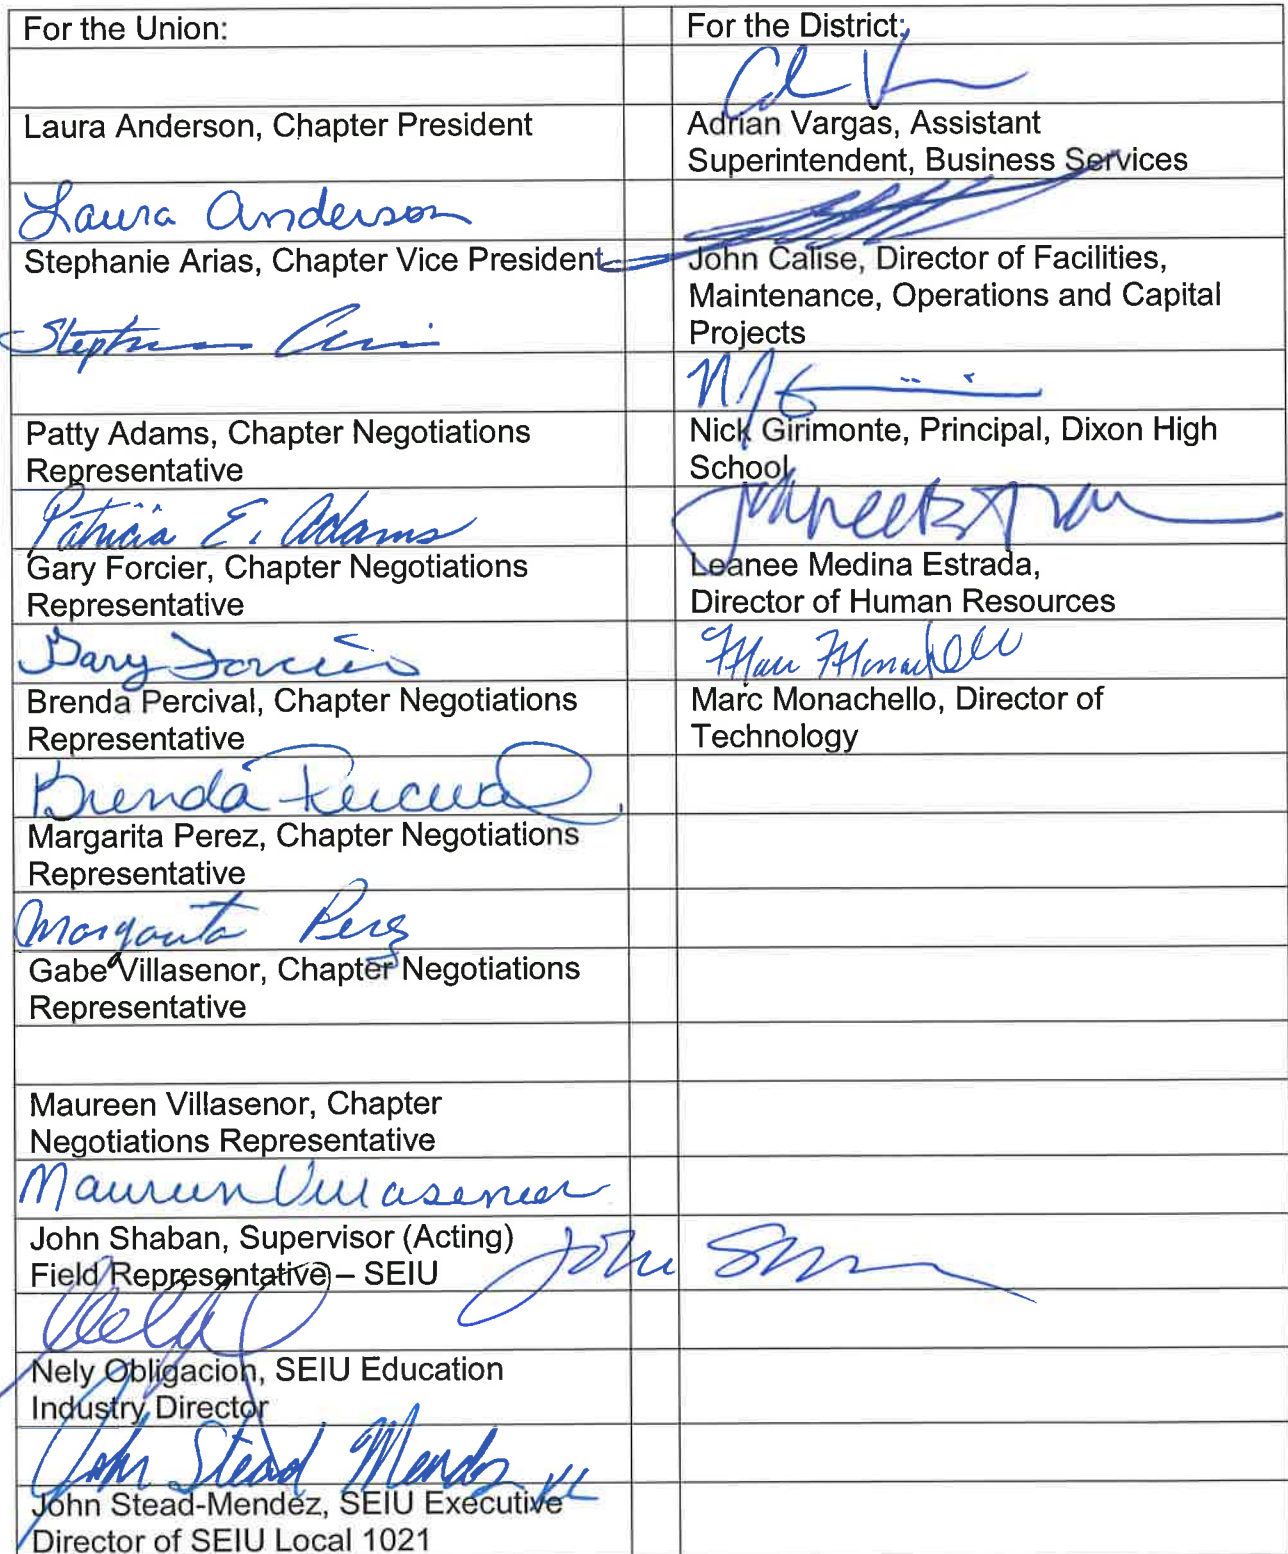 For the Union:
For the District:
Laura Anderson, Chapter President
Adrian Vargas, Assistant
Superintendent, Business Services
Laura Anderson
Stephanie Arias, Chapter Vice President
John Calise, Director of Facilities,
Maintenance, Operations and Capital
Projects
Patty Adams, Chapter Negotiations
Representative
Nick Girimonte, Principal, Dixon High
School
Patricia E. Adams
Gary Forcier, Chapter Negotiations
Representative
Leanee Medina Estrada,
Director of Human Resources
Gary Forcier
Marc Monachello
Brenda Percival, Chapter Negotiations
Representative
Marc Monachello, Director of
Technology
Brenda Percival
Margarita Perez, Chapter Negotiations
Representative
Margarita Perez
Gabe Villasenor, Chapter Negotiations
Representative
Maureen Villasenor, Chapter
Negotiations Representative
Maureen Villasenor
John Shaban, Supervisor (Acting)
Field Representative – SEIU
John
Nely Obligacion, SEIU Education
Industry Director
John Stead Mendez
John Stead-Mendéz, SEIU Executive
Director of SEIU Local 1021